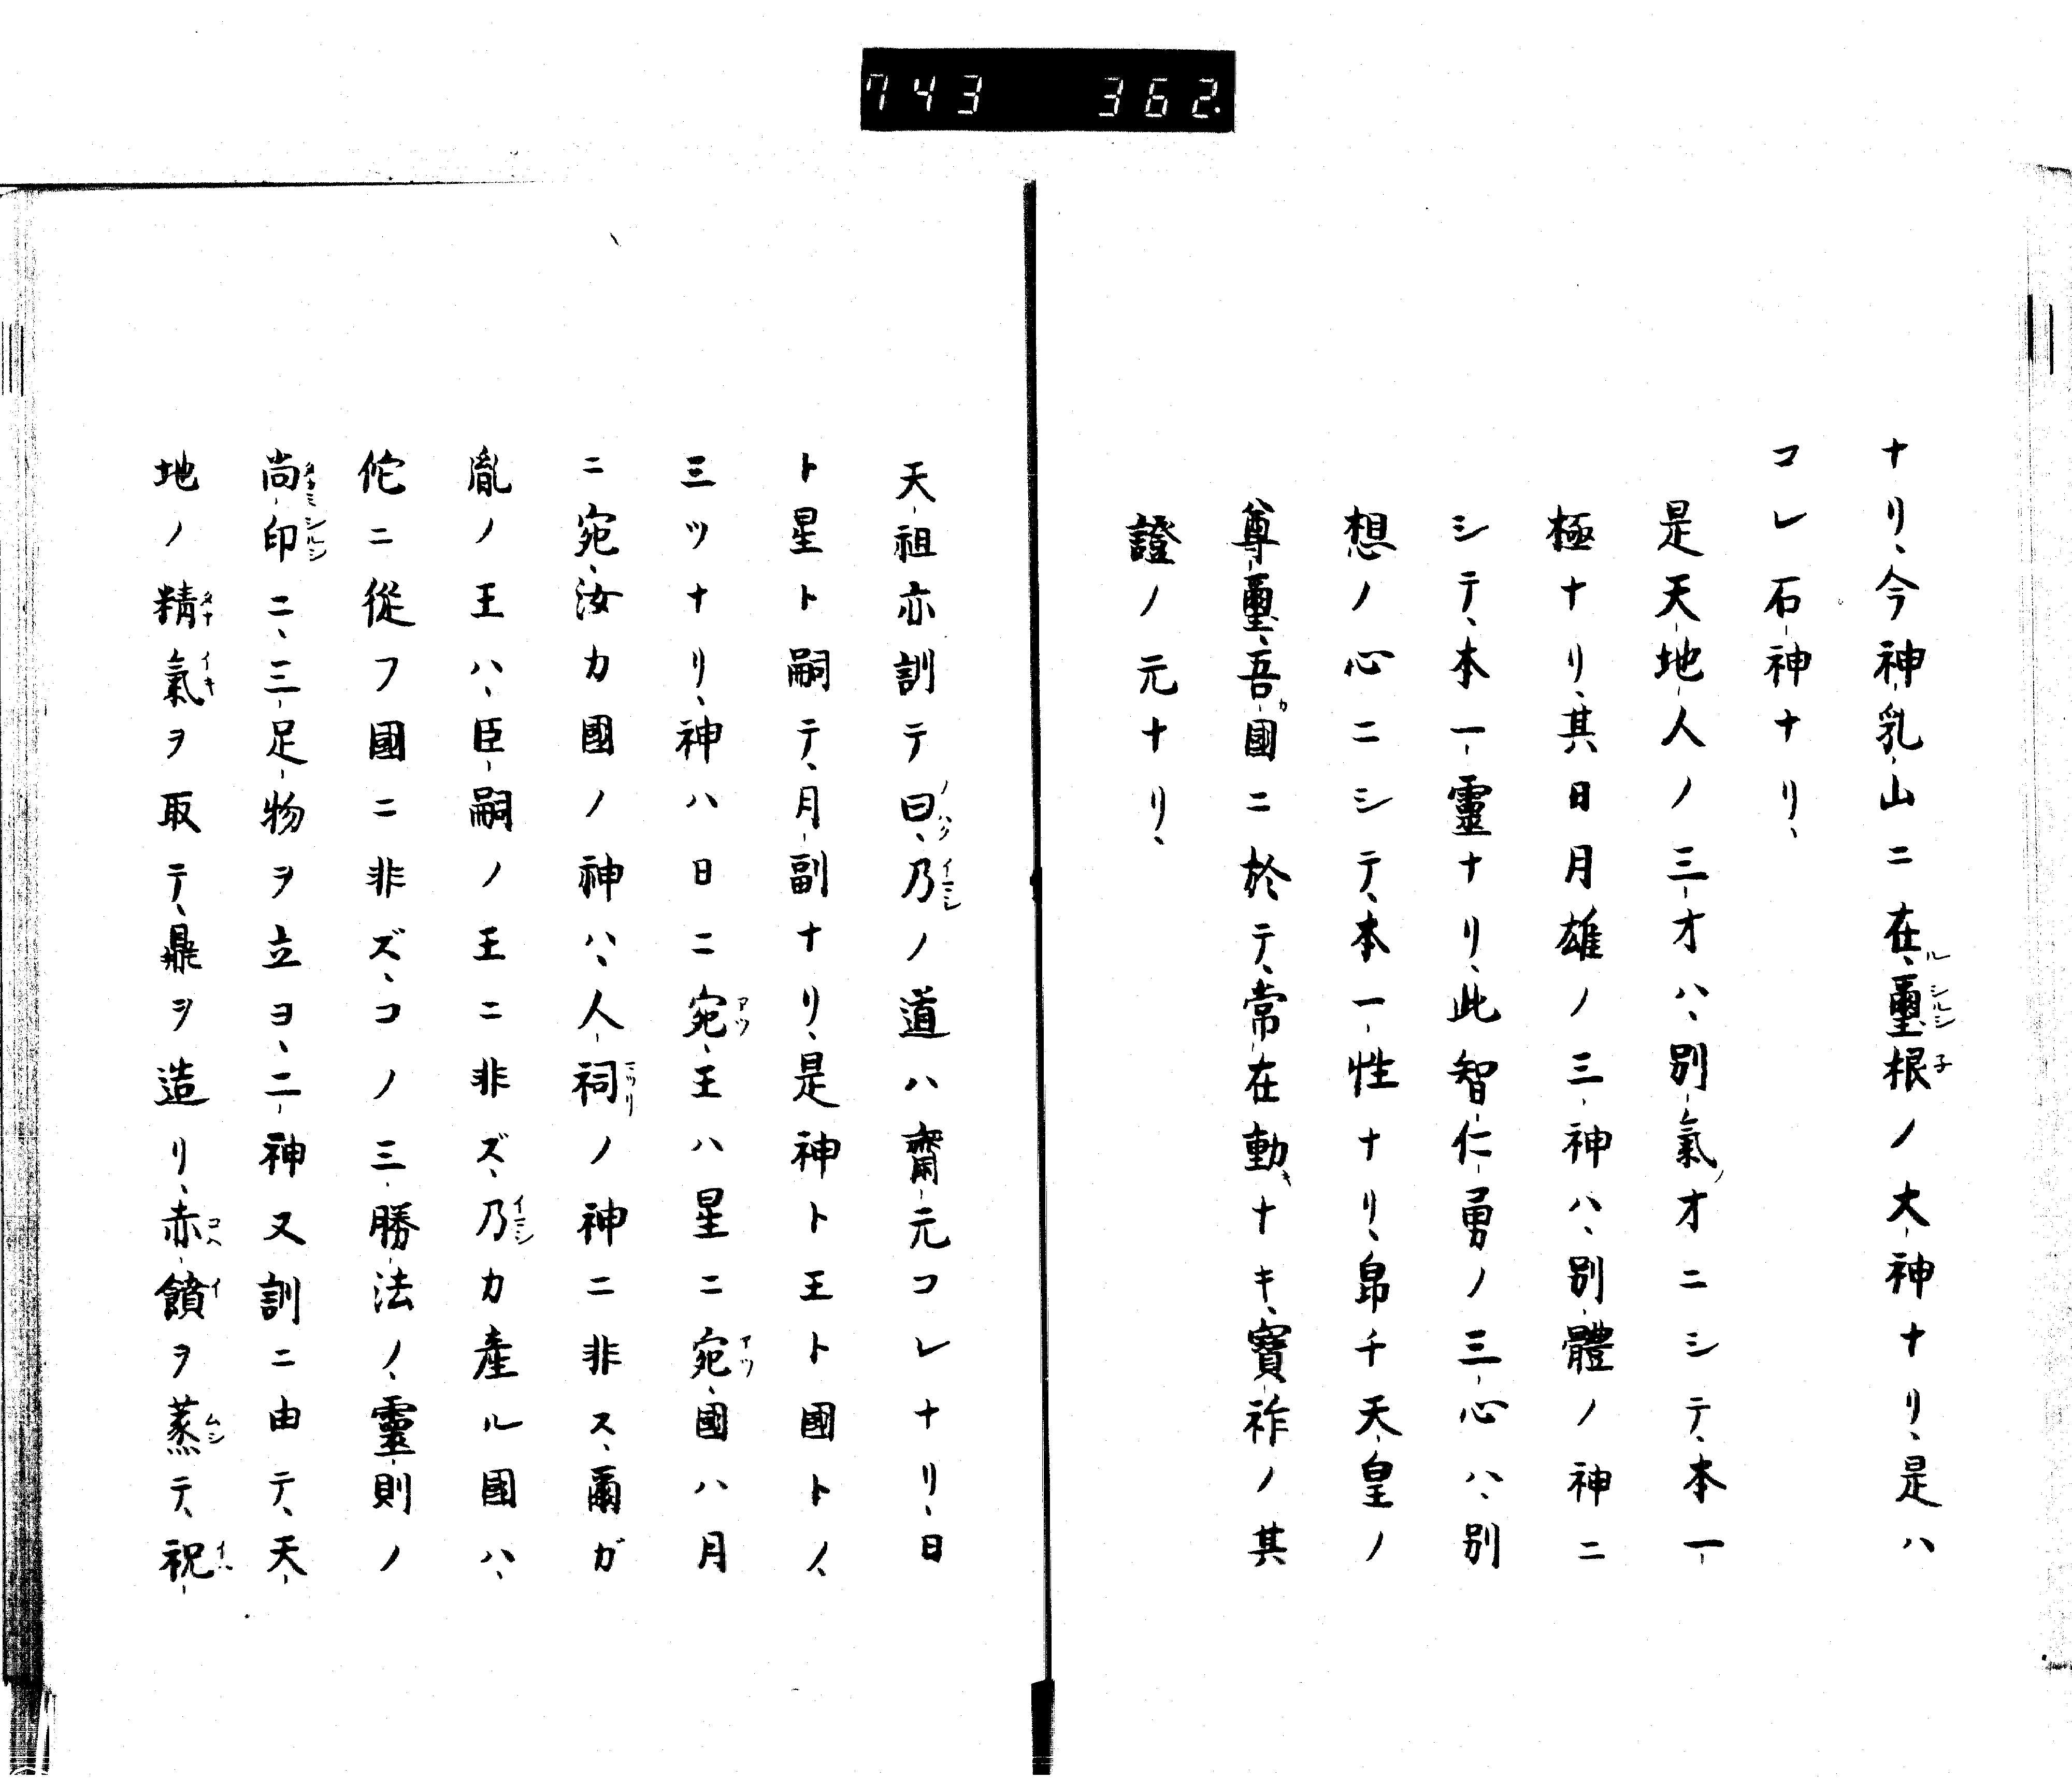 743 362
ナリ、今神乳山ニ在、璽、根ノ大神ナリ、是ハ
コレ石神ナリ、
是天地人ノ三才ハ、別氣才ニシテ、本一
極ナリ、其日月雄ノ三神ハ、別體ノ神ニ
シテ、本一靈ナリ、此智仁勇ノ三心ハ、別
想ノ心ニシテ、本一性ナリ、帛千天皇ノ
尊璽、吾國ニ於テ、常在動ナキ、寶祚ノ其
證ノ元ナリ、
天祖亦訓テ曰、乃ノ道ハ齋元コレナリ、日
ト星ト嗣テ、月副ナリ、是神ト王ト國トノ、
三ツナリ、神ハ日ニ宛、王ハ星ニ宛、國ハ月
ニ宛、汝カ國ノ神ハ、人祠ノ神ニ非ス、爾ガ
胤ノ王ハ、臣嗣ノ王ニ非ズ、乃カ產ル國ハ、
佗ニ從フ國ニ非ズ、コノ三勝法ノ、靈則ノ
尚印ニ、三足物ヲ立ヨ、二神又訓ニ由テ、天
地ノ精氣ヲ取テ、鼎ヲ造リ、赤饙ヲ蒸テ、祝